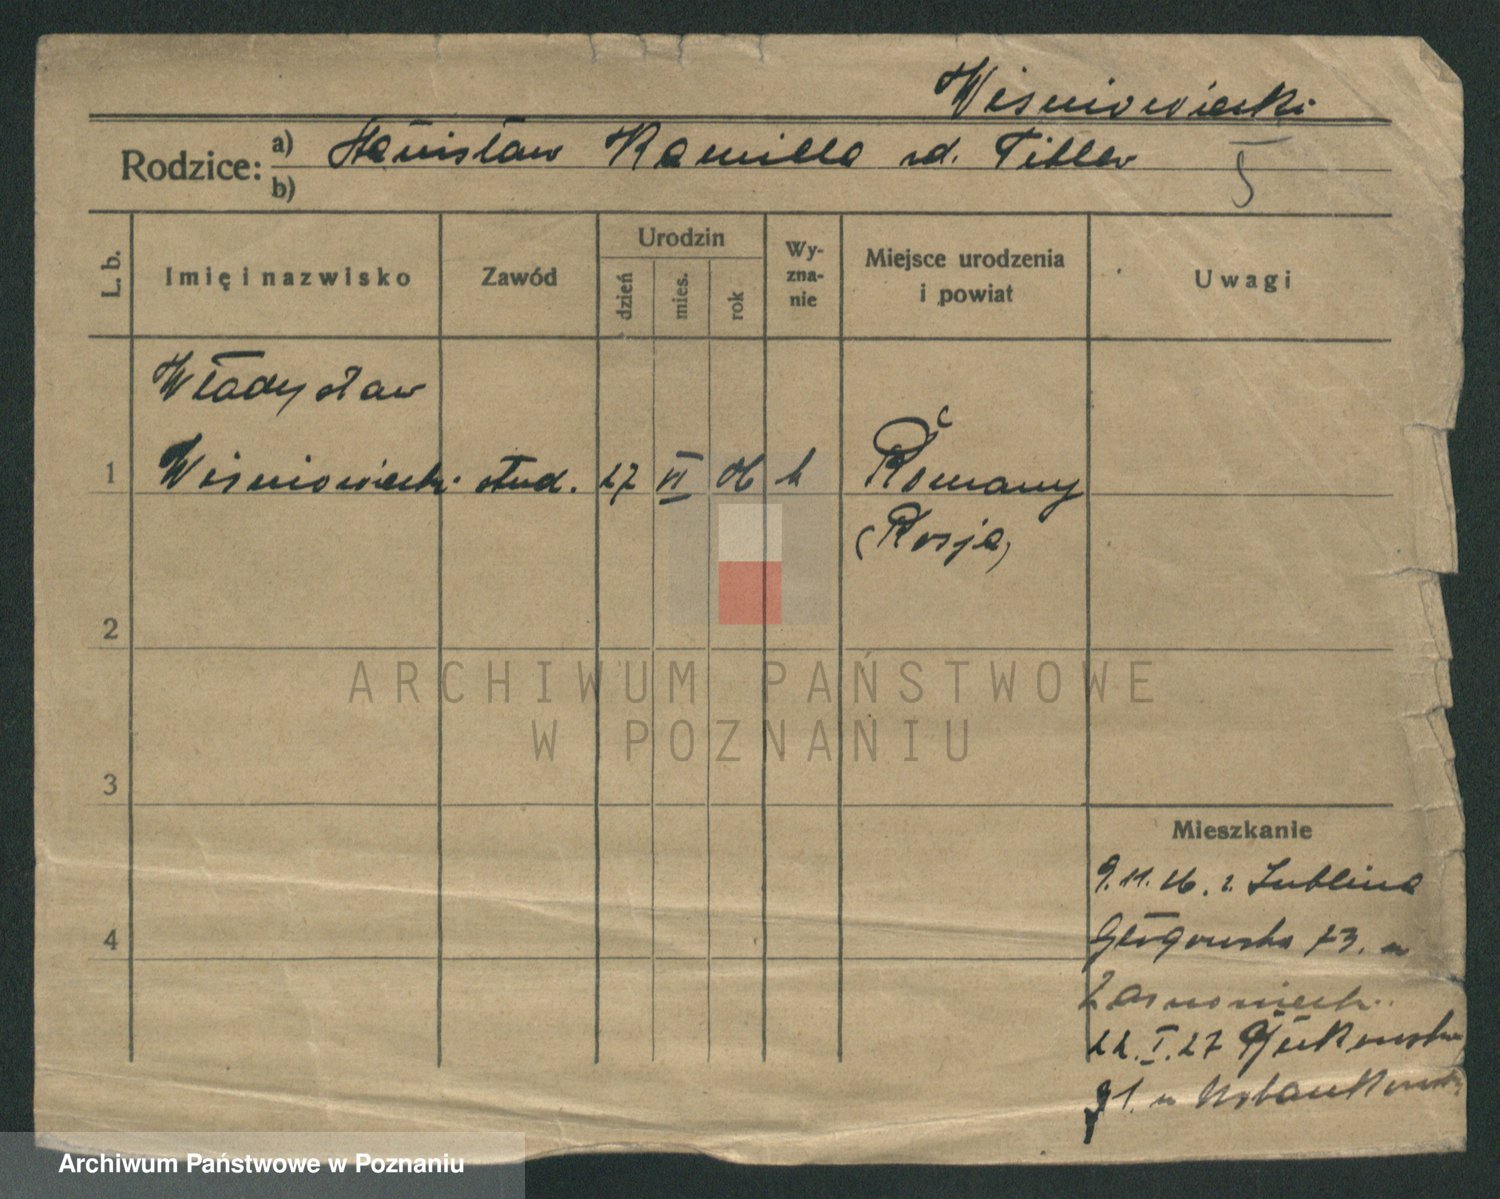 Wiśniowiecki
Rodzice: a) Stanisław Kamilla rd. Tibler
b)
L. b.
Imię i nazwisko
Zawód
Urodzin
dzień
mies.
rok
Wy-
zna-
nie
Miejsce urodzenia
i powiat
Uwagi
Władysław
1 Wiśniowiecki stud. 27 VI 06 k Romany
(Rosja)
2
3
4
Mieszkanie
9.11.26. z Lublina
Głogowska 73. u
22.I.27
91. u
ARCHIWUM PAŃSTWOWE
W POZNANIU
Archiwum Państwowe w Poznaniu